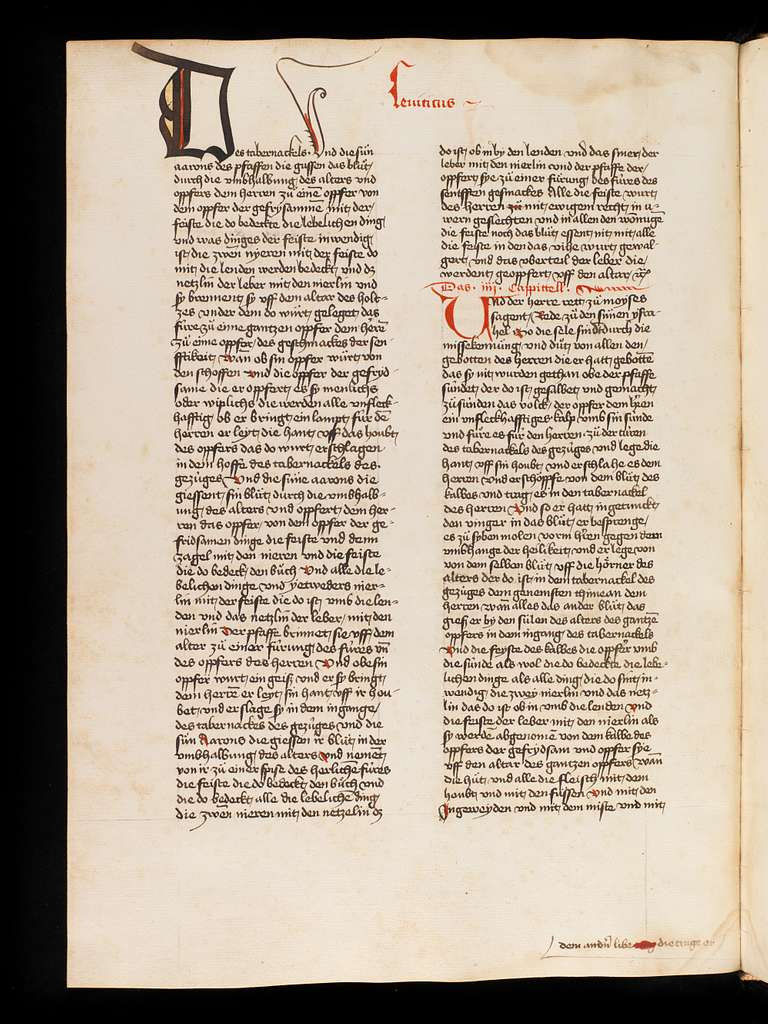 Leuiticus
Des tabernackels. Vnd die sün
aarons des pfaffen die gussen das blůt/
durch die vmbhalbung des alters vnd
oppfers dem herren zů eine oppfer von
dem oppfer der gefrysammē mit der/
feiste die do bedeckte die lebelichen ding/
vnd was dinges der feiste inwendig
ist/ die zwen nyeren mit der feiste do
mit die lenden werden bedeckt/ vnd dz
netzlin der leber mit den nierlin vnd
sy brennent sy vff dem altar des holt-
zes vnder dem do würt geleget das
füre zů eime gantzen oppfer dem herrē
zů eime oppfer/ des geschmackes der sen-
fftikeit/ Wan ob sin oppfer würt von
den schoffen vnd die oppfer der gefryd-
same die er oppfert/ es sy menlichs
oder wiplichs die werden alle vnfleck-
hafftig/ ob er bringt ein lamp/ für dē
herren er leyt die hant vff das houbt
des oppfers das do wurt erschlagen
in dem hoffe des tabernackels des.
gezüges Vnd die süne aarons die
giessent/ sin blůt durch die vmbhalb-
ung des alters vnd oppfert dem her-
ren das oppfer/ von dem oppfer der ge-
fridsamen dinge die feiste vnd denn
zagel mit den nieren vnd die feiste
die do bedeck den büch Vnd alle die le-
belichen dinge vnd yetweders nier-
lin mit der feiste die do ist/ vmb die len-
den vnd das netzlin der leber/ mit den
nierlin Der pfaffe brinnet sie vff dem
alter zů einer fürung des füres vn
des oppfers des herren Vnd obe sin
oppfer wurt ein geiss/ vnd er sy bringt/
dem herrē er leyt sin hant vff ir hou-
bet/ vnd er slage sy in dem ingange/
des tabernackes des gezüges vnd die
sün Aarons die giessen ir blůt in der
vmbhalbung des alters Vnd nement
von ir zů einer spise des herliche füres
die feiste die do bedeckt den büch vnd
die do bedeckt alle die lebeliche ding
die zwen nieren mit den netzelin dz
do ist ob in by den lenden vnd das smer/ der
leber mit den nierlin vnd der pfaffe der/
oppfert sye zů einer fürung des füres des
senfften gesmackes Alle die feiste wurt
des herren mit ewigen recht in ü-
wern geslechten vnd in allen den wonūge
die feiste noch das blůt essent nit mit alle
die feiste in den das vihe wurt gewal-
gert/ vnd das vberteil der leber die
werdent geoppfert vff den altar
Das . iiij . Cappittell .
Vnd der herre rett zů moyses
sagent/ Rede zů den sünen ysra-
hel So die sele sündet durch die
missekennung vnd düt von allen den/
gebotten des herren die er hatt gebotte
das sy nit wurden gethan obe der pfaffe
sündet der do ist/ gesalbet vnd gemacht
zů sünden das volck/ der oppfer dem hren
ein vnfleckhafftiges kalp vmb sin sünde
vnd füre es für den herren. zů der türen
des tabernackels des gezüges vnd lege die
hant vff sin houbt vnd erschlahe es dem
herren Vnd er schöpffe von dem blůt des
kalbes vnd trag es in den tabernackel
des herren Vnd so er hatt ingetunckt
den vinger in das blůt/ er besprenge/
es zů syben molen vor m hren gegen dem
vmbhange der heilikeit/ vnd er lege von
von dem selben blůt vff die hörner des
alters der do ist/ in dem tabernackel des
gezüges dem genemsten thimean dem
herren wan alles das ander blůt das
giess er by den sülen des alters des gantzē
oppfers in dem ingang des tabernackels
Vnd die feyste des kalbes die oppfer vmb
die sünde als wol die do bedeckte die lebe-
lichen dinge als alle ding die do sint in-
wendig die zwey nierlin vnd das netz-
lin das do ist ob in vmb die lenden Vnd
die feiste der leber mit den nierlin als
sy werdē abgenomē von dem kalbe des
oppfers der gefrydsam vnd oppfer sye
vff den altar des gantzen oppfers wan
die hüt vnd alle die fleisch mit dem
houbt vnd mit den füssen Vnd mit den
Ingeweyden vnd mit dem miste vnd mit
dem andn libe die truge er